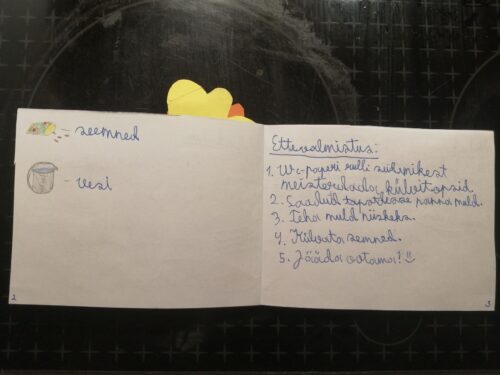 - seemned
- vesi
2
Ettevalmistus:
1. Wc-paperi rulli südamikest
meisterdada külvitopsid.
2. Saadud topsidesse panna muld.
3. Teha muld niiskeks.
4. Külvata seemned.
5. Jääda ootama!
3